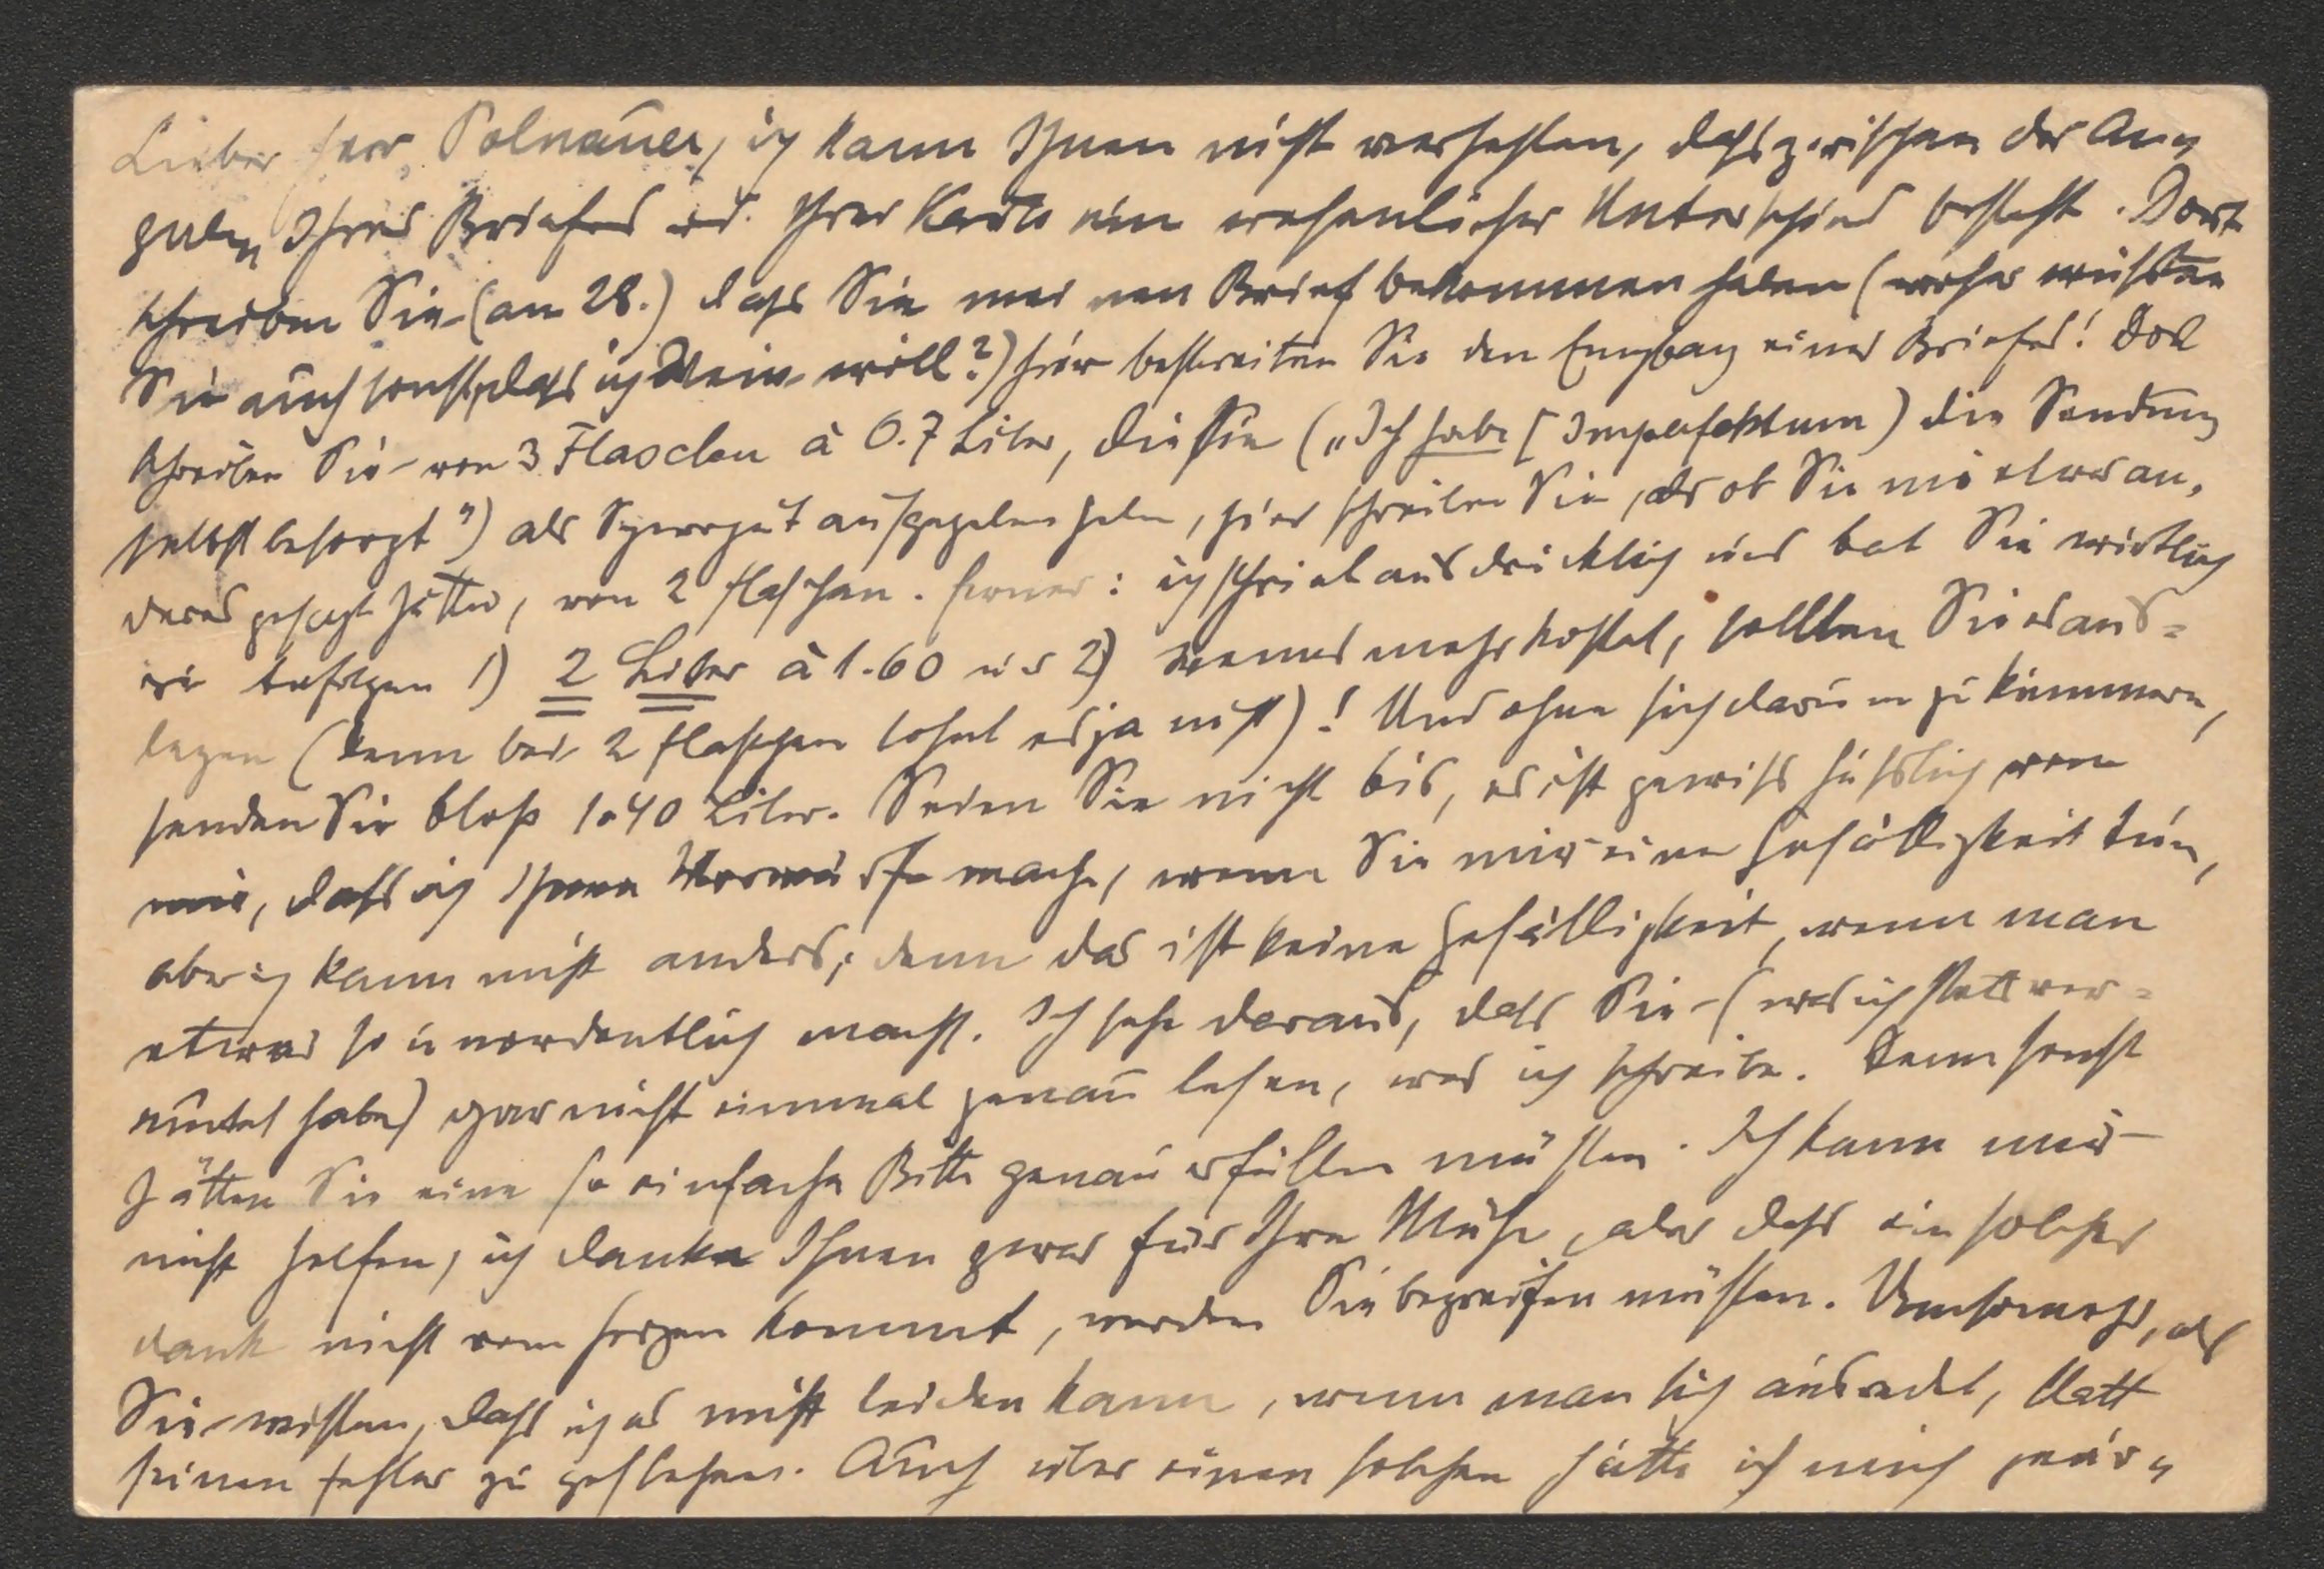 Lieber Herr Polnauer, ich kann Ihnen nicht verhehlen, dass zwischen der An-
gaben Ihres Briefes u. Ihrer Karte ein wesentlicher Unterschied besteht. Dort
schreiben Sie (am 28.) dass Sie meinen Brief bekommen haben (woher wüssten
Sie auch sonst, dass ich Wein will?) hier bestreiten Sie den Empfang eines Briefes! Dort
schreiben Sie von 3 Flaschen à 0.7 Liter, die Sie („Ich habe [Imperfektum) die Sendung
selbst besorgt") als Sperrgut aufgegeben haben, hier schreiben Sie, als ob Sie nie etwas an-
deres gesagt hätten, von 2 Flaschen. Ferner: ich schrieb ausdrücklich und bat Sie wörtlich
zu befolgen 1) 2 Liter à 1.60 und 2) wenn es mehr kostet, sollten Sie es aus=
legen (denn bei 2 Flaschen lohnt es ja nicht)! Und ohne sich darum zu kümmern,
senden Sie bloß 1.40 Liter. Seien Sie nicht bös, es ist gewiss hässlich von
mir, dass ich Ihnen Vorwürfe mache, wenn Sie mir eine Gefälligkeit tun,
aber ich kann nicht anders; denn das ist keine Gefälligkeit, wenn man
etwas so unordentlich macht. Ich sehe daraus, dass Sie (was ich stets ver=
mutet habe) gar nicht einmal genau lesen, was ich schreibe. Denn sonst
hätten Sie eine so einfache Bitte genau erfüllen müssen. Ich kann mir
nicht helfen, ich danke Ihnen zwar für Ihre Mühe, aber dass ein solcher
Dank nicht vom Herzen kommt, werden Sie begreifen müssen. Umsomehr, als
Sie wissen, dass ich es nicht leiden kann, wenn man sich ausredet, statt
seinen Fehler zu gestehen. Auch über einen solchen hätte ich mich geär-